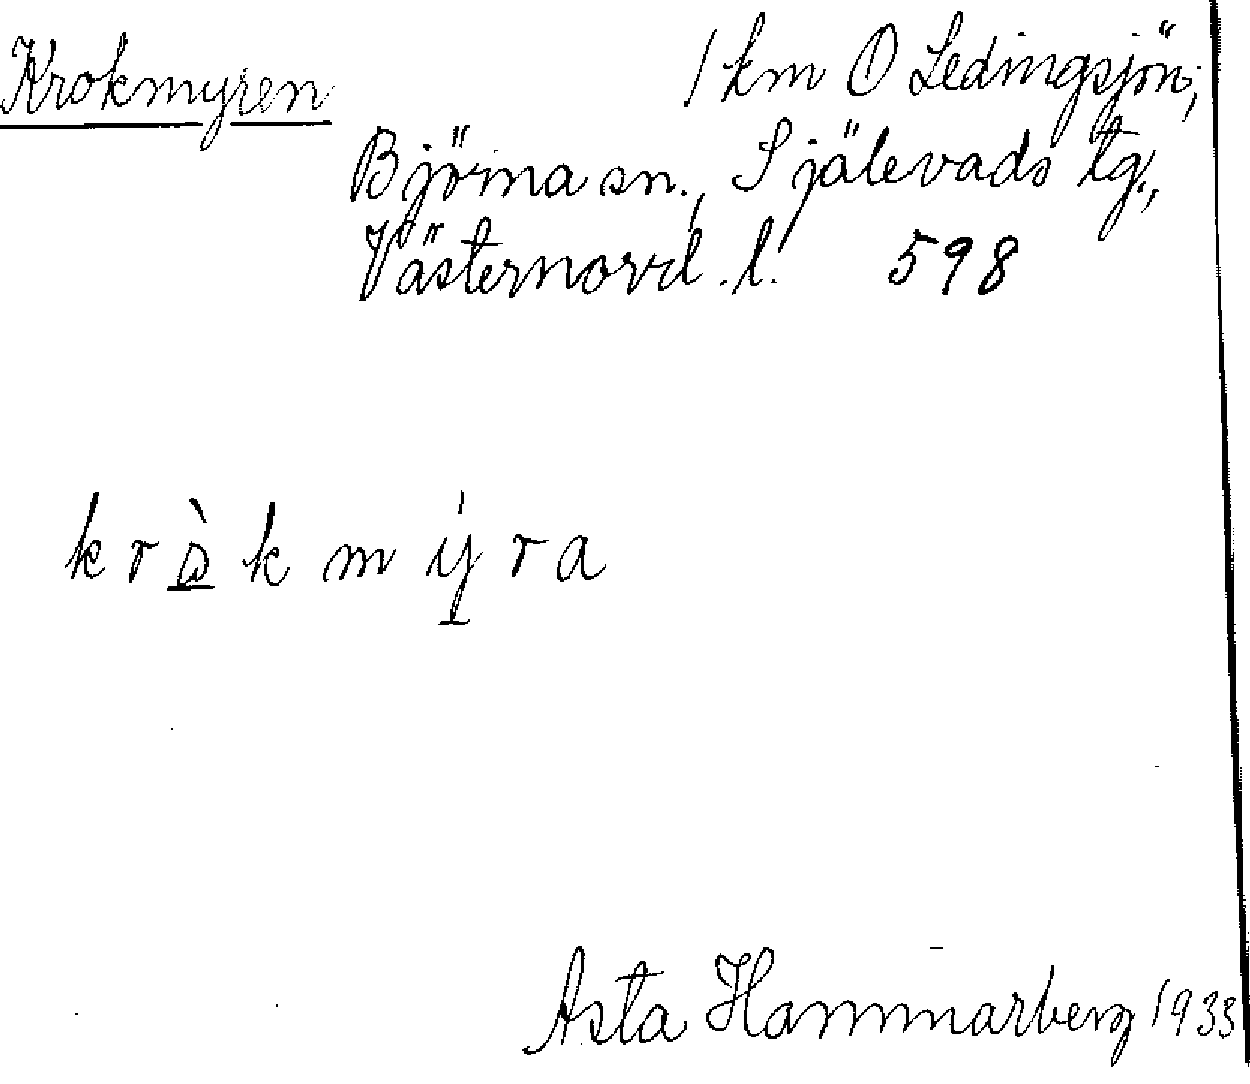 Krokmyren 1 km O Ledingsjön;
Björna sn., Själevads tg.,
Västernorrl. l. 598
k r k m y r a
Asta Hammarberg 1933